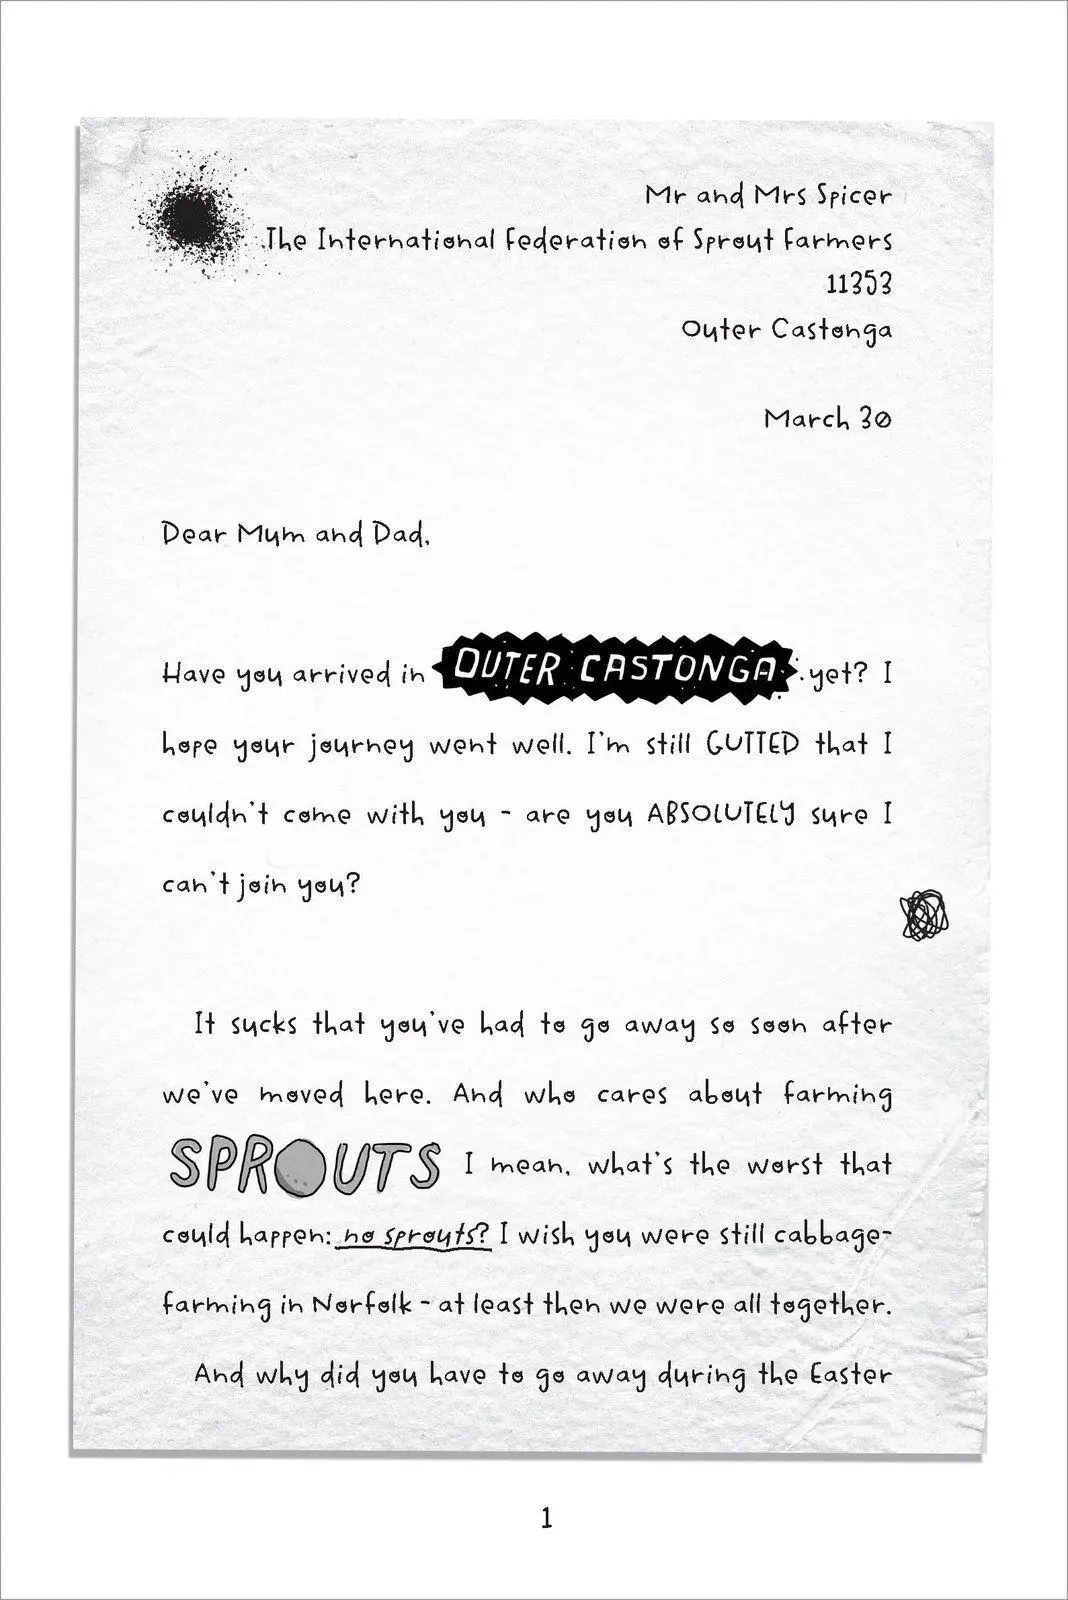 Mr and Mrs Spicer
The International Federation of Sprout Farmers
11353
Outer Castonga
March 30
Dear Mum and Dad,
Have you arrived in OUTER CASTONGA yet? I
hope your journey went well. I'm still GUTTED that I
couldn't come with you - are you ABSOLUTELY sure I
can't join you?
It sucks that you've had to go away so soon after
we've moved here. And who cares about farming
SPROUTS I mean, what's the worst that
could happen: no sprouts? I wish you were still cabbage-
farming in Norfolk - at least then we were all together.
And why did you have to go away during the Easter
1